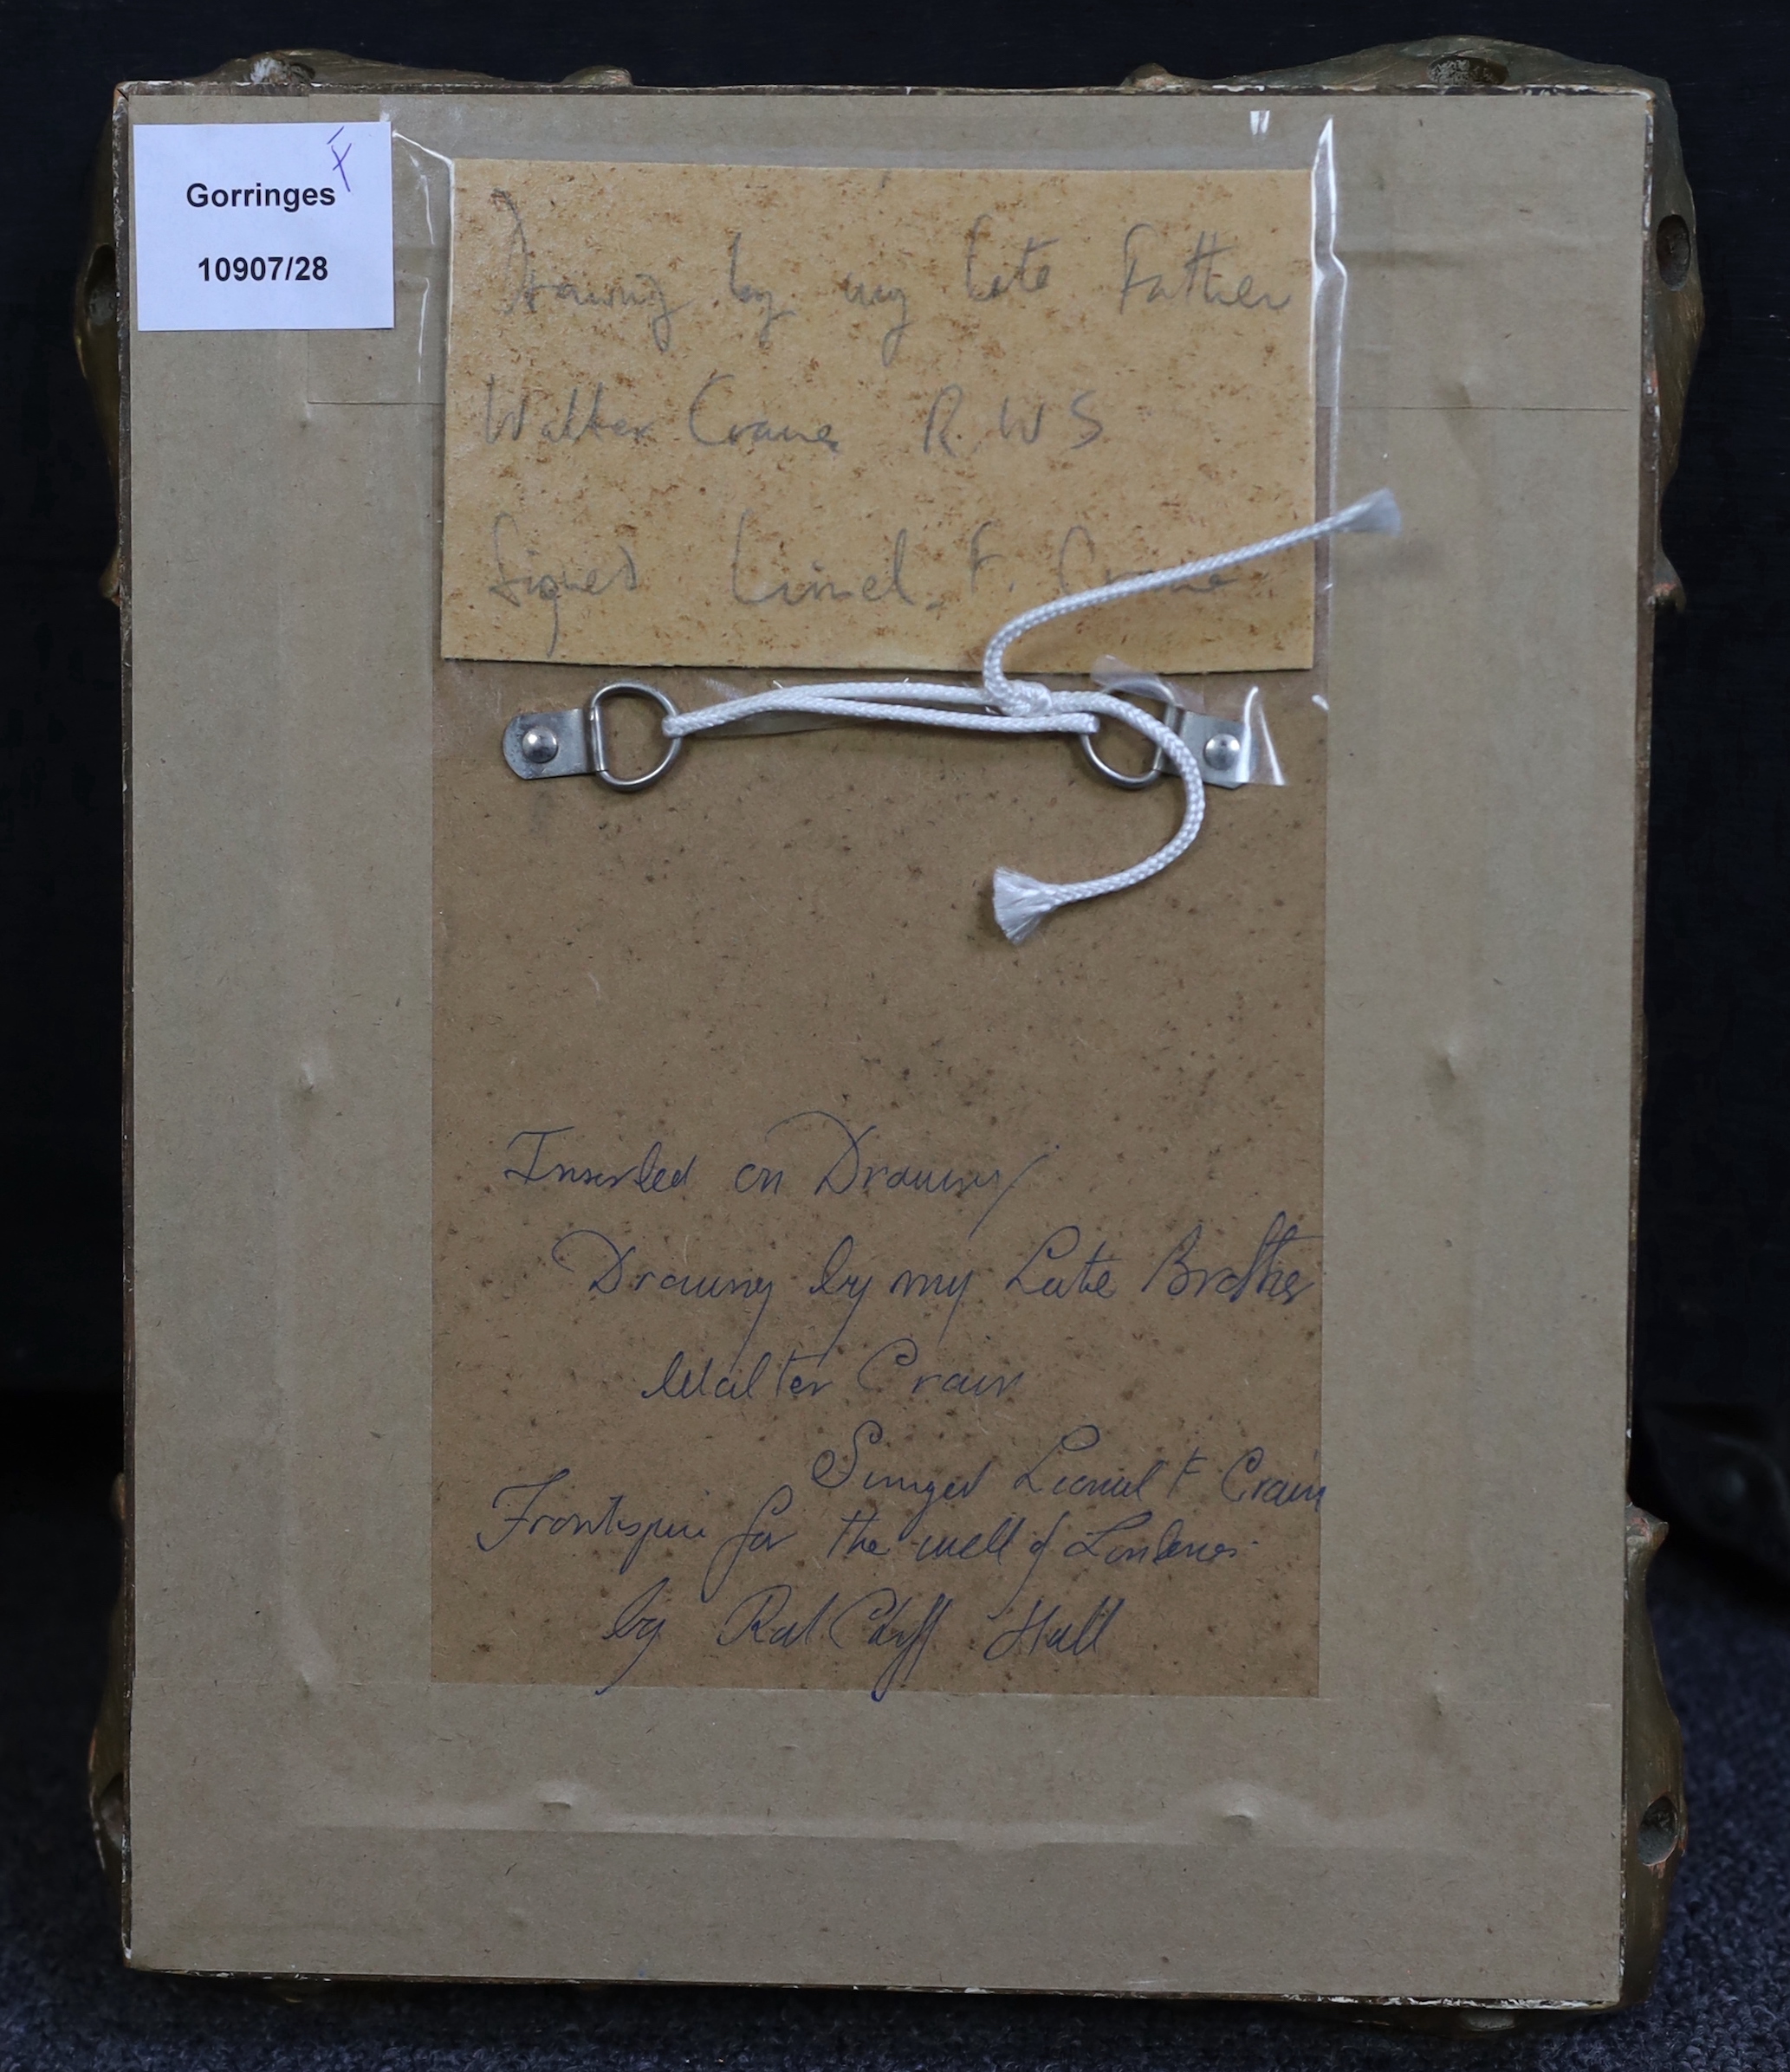 F
Gorringes
10907/28
Drawing by my late Father
Walter Crane R.W.S
Signed Lionel. F. Crane
Inserted on Drawing
Drawing by my Late Brother
Walter Crane
Singed Lionel F Crane
for the well of
by Rat Clyff Hall